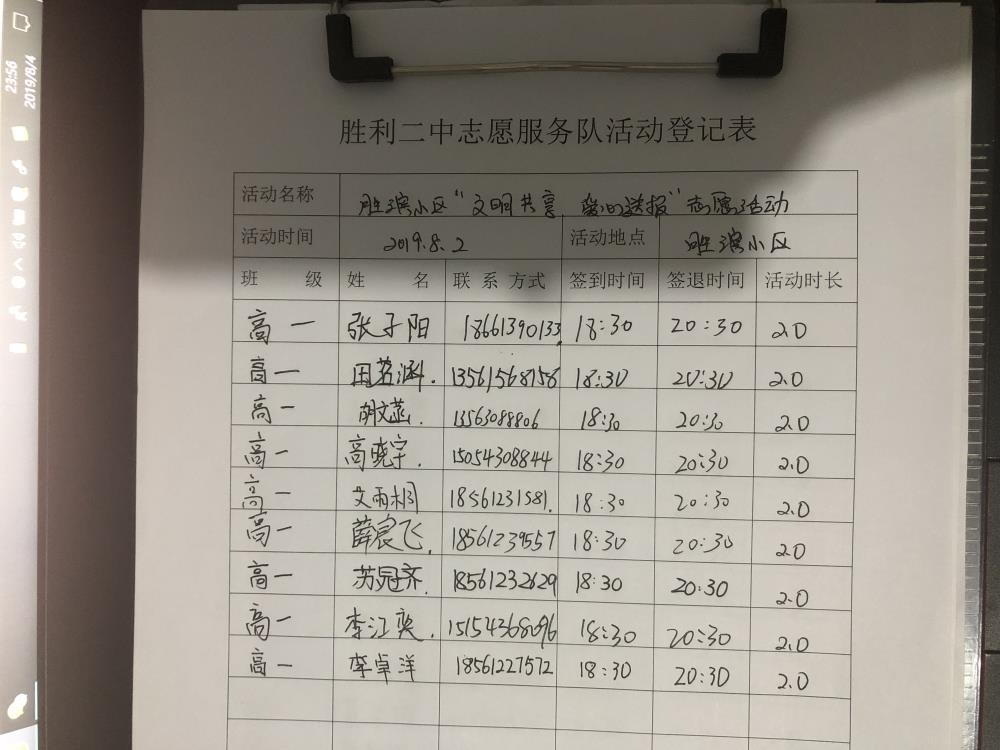 23:56
2019/8/4
胜利二中志愿服务队活动登记表
活动名称 胜滨小区“文明共享 爱心送报”志愿活动
活动时间 2019.8.2 活动地点 胜滨小区
班 级 姓 名 联系方式 签到时间 签退时间 活动时长
高一 张子阳 18661390133 18:30 20:30 2.0
高一 田茗涵 13561568158 18:30 20:30 2.0
高一 胡文菡 13563088806 18:30 20:30 2.0
高一 高晓宇 15054308844 18:30 20:30 2.0
高一 艾雨桐 18561231581 18:30 20:30 2.0
高一 薛宸飞 18561239557 18:30 20:30 2.0
高一 苏冠齐 18561232629 18:30 20:30 2.0
高一 李江奕 15154368096 18:30 20:30 2.0
高一 李卓洋 18561227572 18:30 20:30 2.0